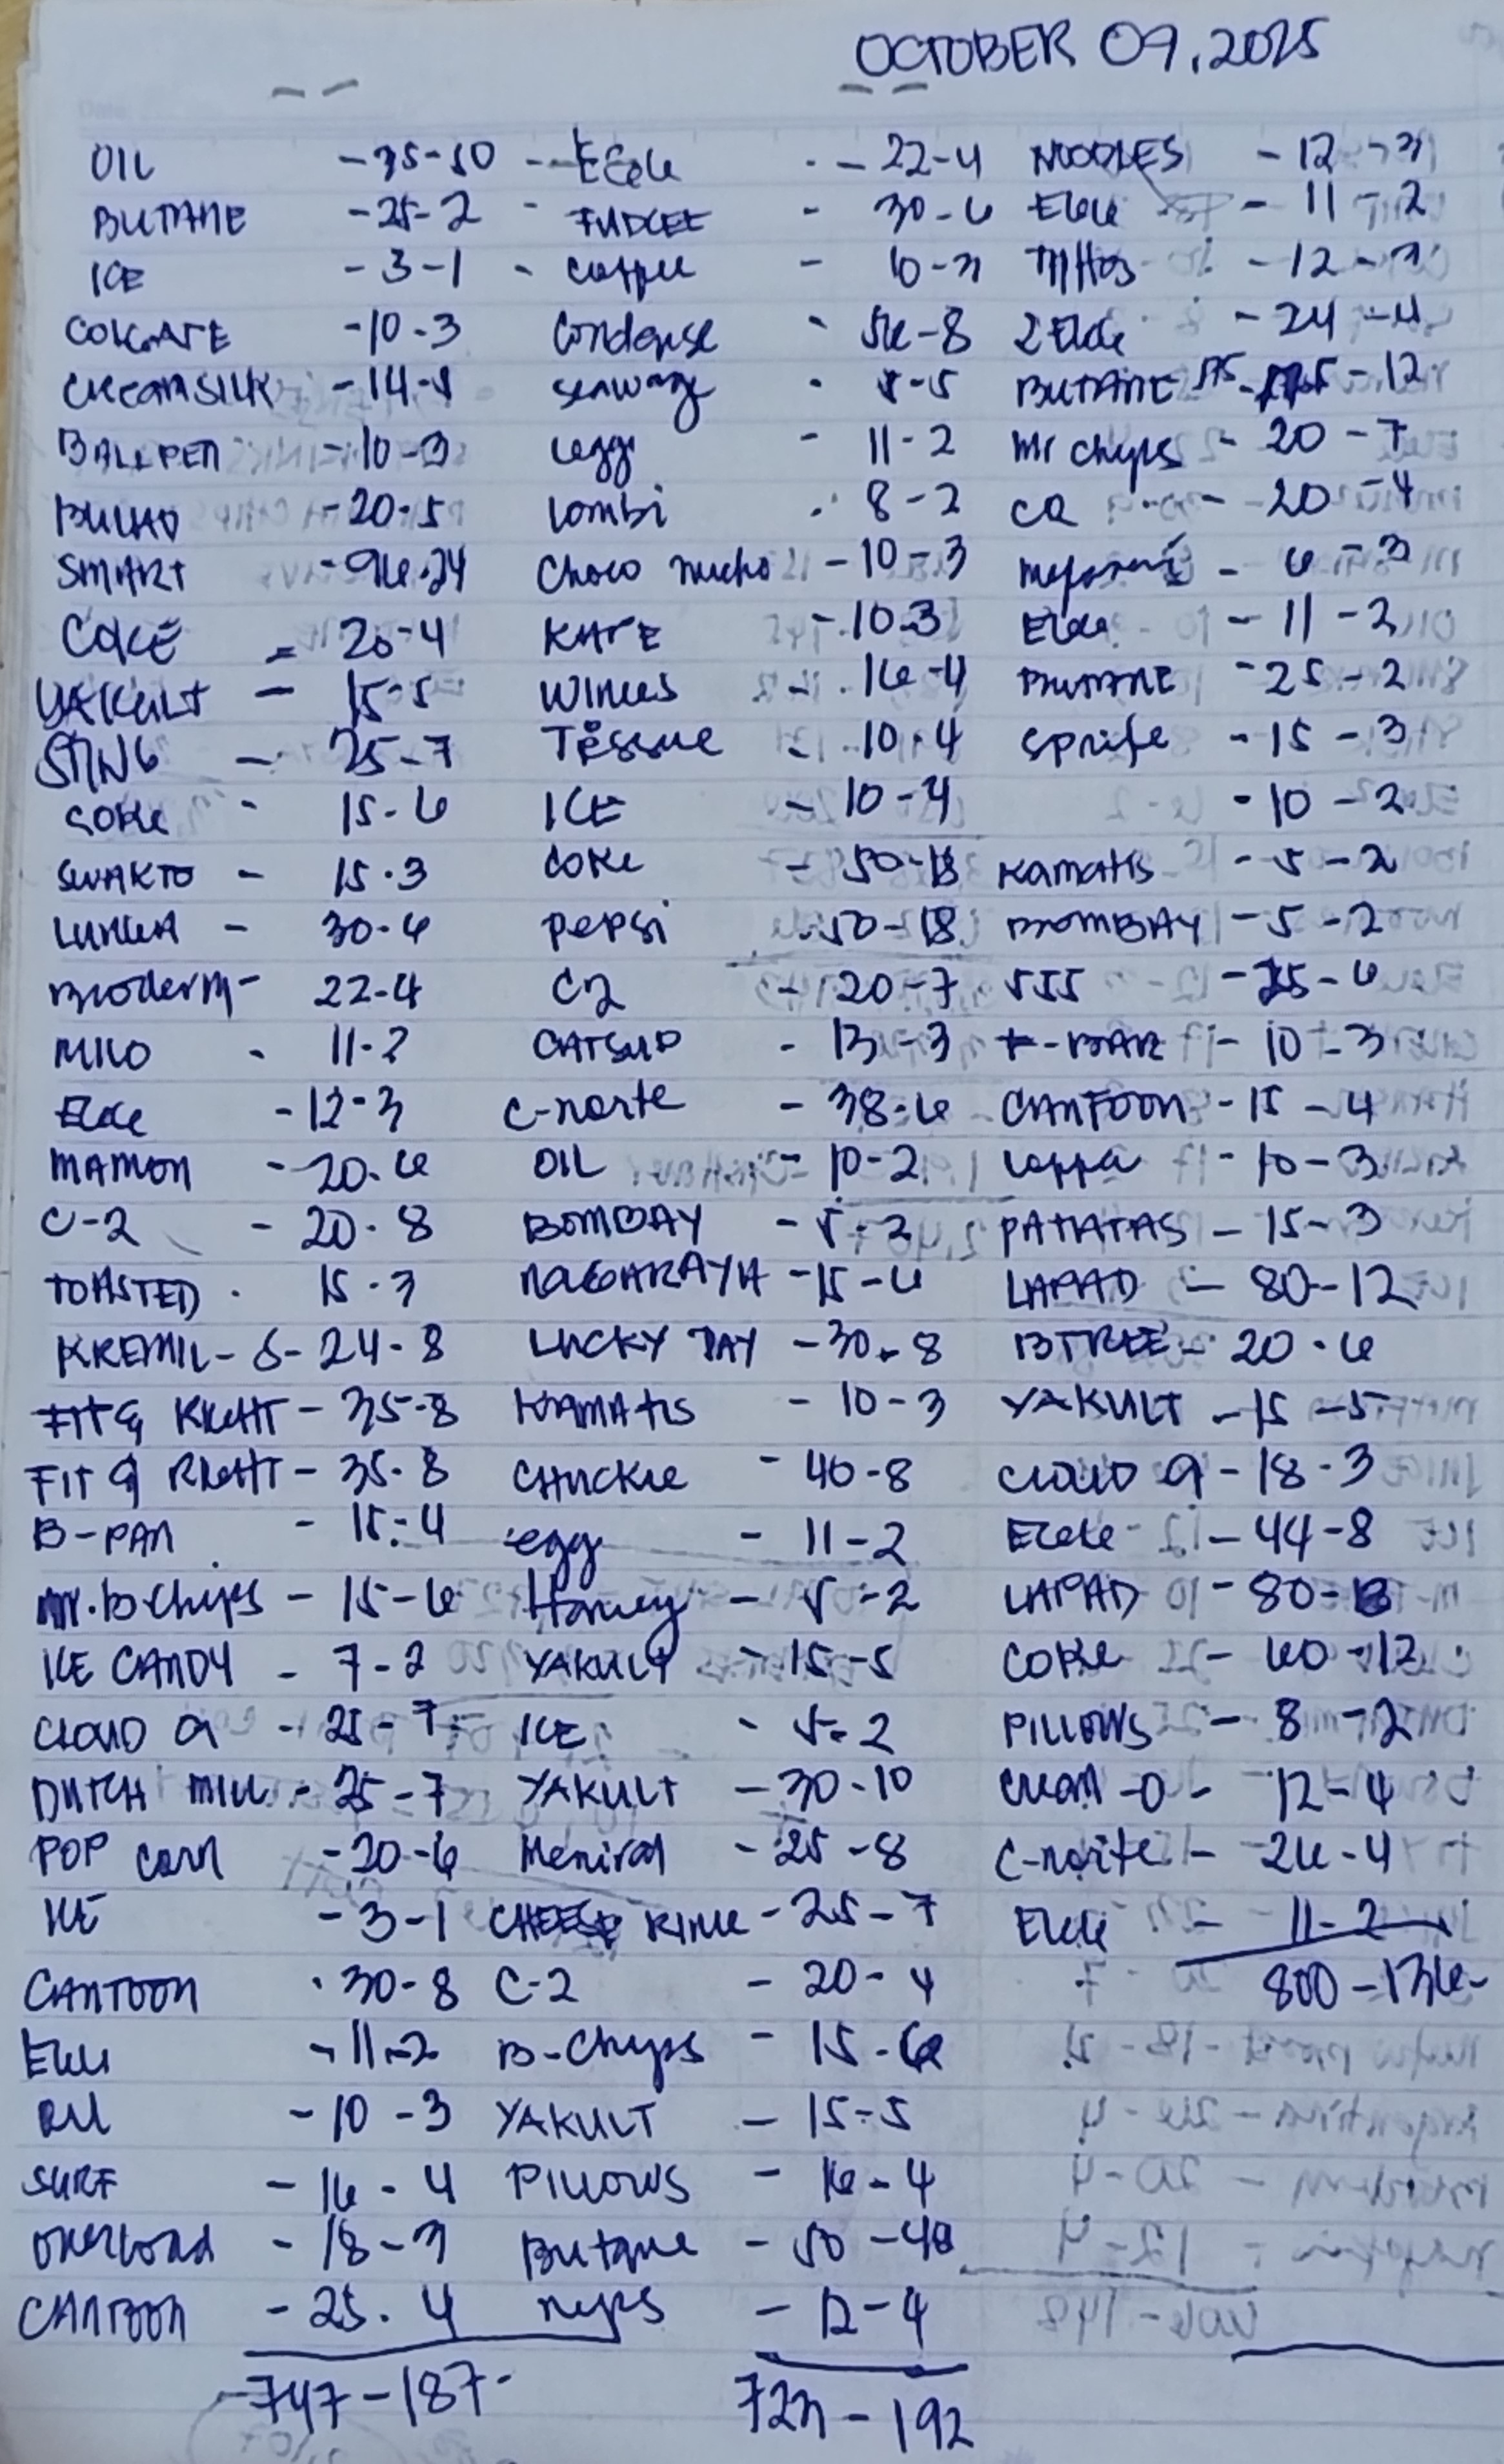 OCTOBER 09, 2025
OIL - 35-50
BUTANE - 25-2
ICE - 3-1
COLGATE - 10-3
CREAMSILK - 14-
BALLPEN - 10-3
- 20-5
SMART - 96-24
COKE = 20-4
YAKULT - 15-5
STING - 25-7
COKE - 15-6
SWAKTO - 15-3
- 30-6
Bioderm - 22-4
MILO - 11-2
- 12-3
MAMON - 20-6
C-2 - 20-8
TOASTED - 15-3
KREMIL-S - 24-8
FIT & RIGHT - 35-8
FIT & RIGHT - 35-8
B-PAN - 15-4
Mr. B-Chips - 15-6
ICE CANDY - 7-2
CLOUD 9 - 25-7
DUTCH MILL - 25-7
POP corn - 20-6
ICE - 3-1
CANTOON - 30-8
- 11-2
- 10-3
SURF - 16-4
OVERLOAD - 18-3
CANTOON - 25-4
747-187
- 22-4
FUDGEE - 30-6
- 10-3
Condense - 56-8
- 5-5
egg - 11-2
Lombi - 8-2
Choco mucho - 10-3
KAPE - 10-3
- 16-4
Tissue - 10-4
ICE - 10-4
COKE - 50-18
Pepsi - 50-18
C2 - 20-7
CATSUP - 13-3
C-norte - 38-6
OIL - 10-2
BOMBAY - 5-2
NAGARAYA - 15-6
LUCKY DAY - 30-8
KAMATIS - 10-3
CHUCKIE - 40-8
egg - 11-2
Haney - 5-2
YAKULT - 15-5
ICE - 5-2
YAKULT - 30-10
Meniral - 25-8
CHEESE RING - 25-7
C-2 - 20-4
B-Chips - 15-6
YAKULT - 15-5
PILLOWS - 16-4
Butane - 50-
- 12-4
723-192
NOODLES - 12-3
- 11-2
- 12-3
- 24-4
BUTANE - 12
Mr Chips - 20-7
C2 - 20-4
- 6-3
- 11-2
BUTANE - 25-2
Sprite - 15-3
- 10-2
Kamatis - 5-2
BOMBAY - 5-2
555 - 25-6
- 10-3
CANTOON - 15-4
- 10-3
PATATAS - 15-3
LAPAD - 80-12
BTREE - 20-6
YAKULT - 15-5
CLOUD 9 - 18-3
- 44-8
LAPAD - 80-
COKE - 60-12
PILLOWS - 8-2
CREAM-O - 12-4
C-norte - 26-4
- 11-2
800-136